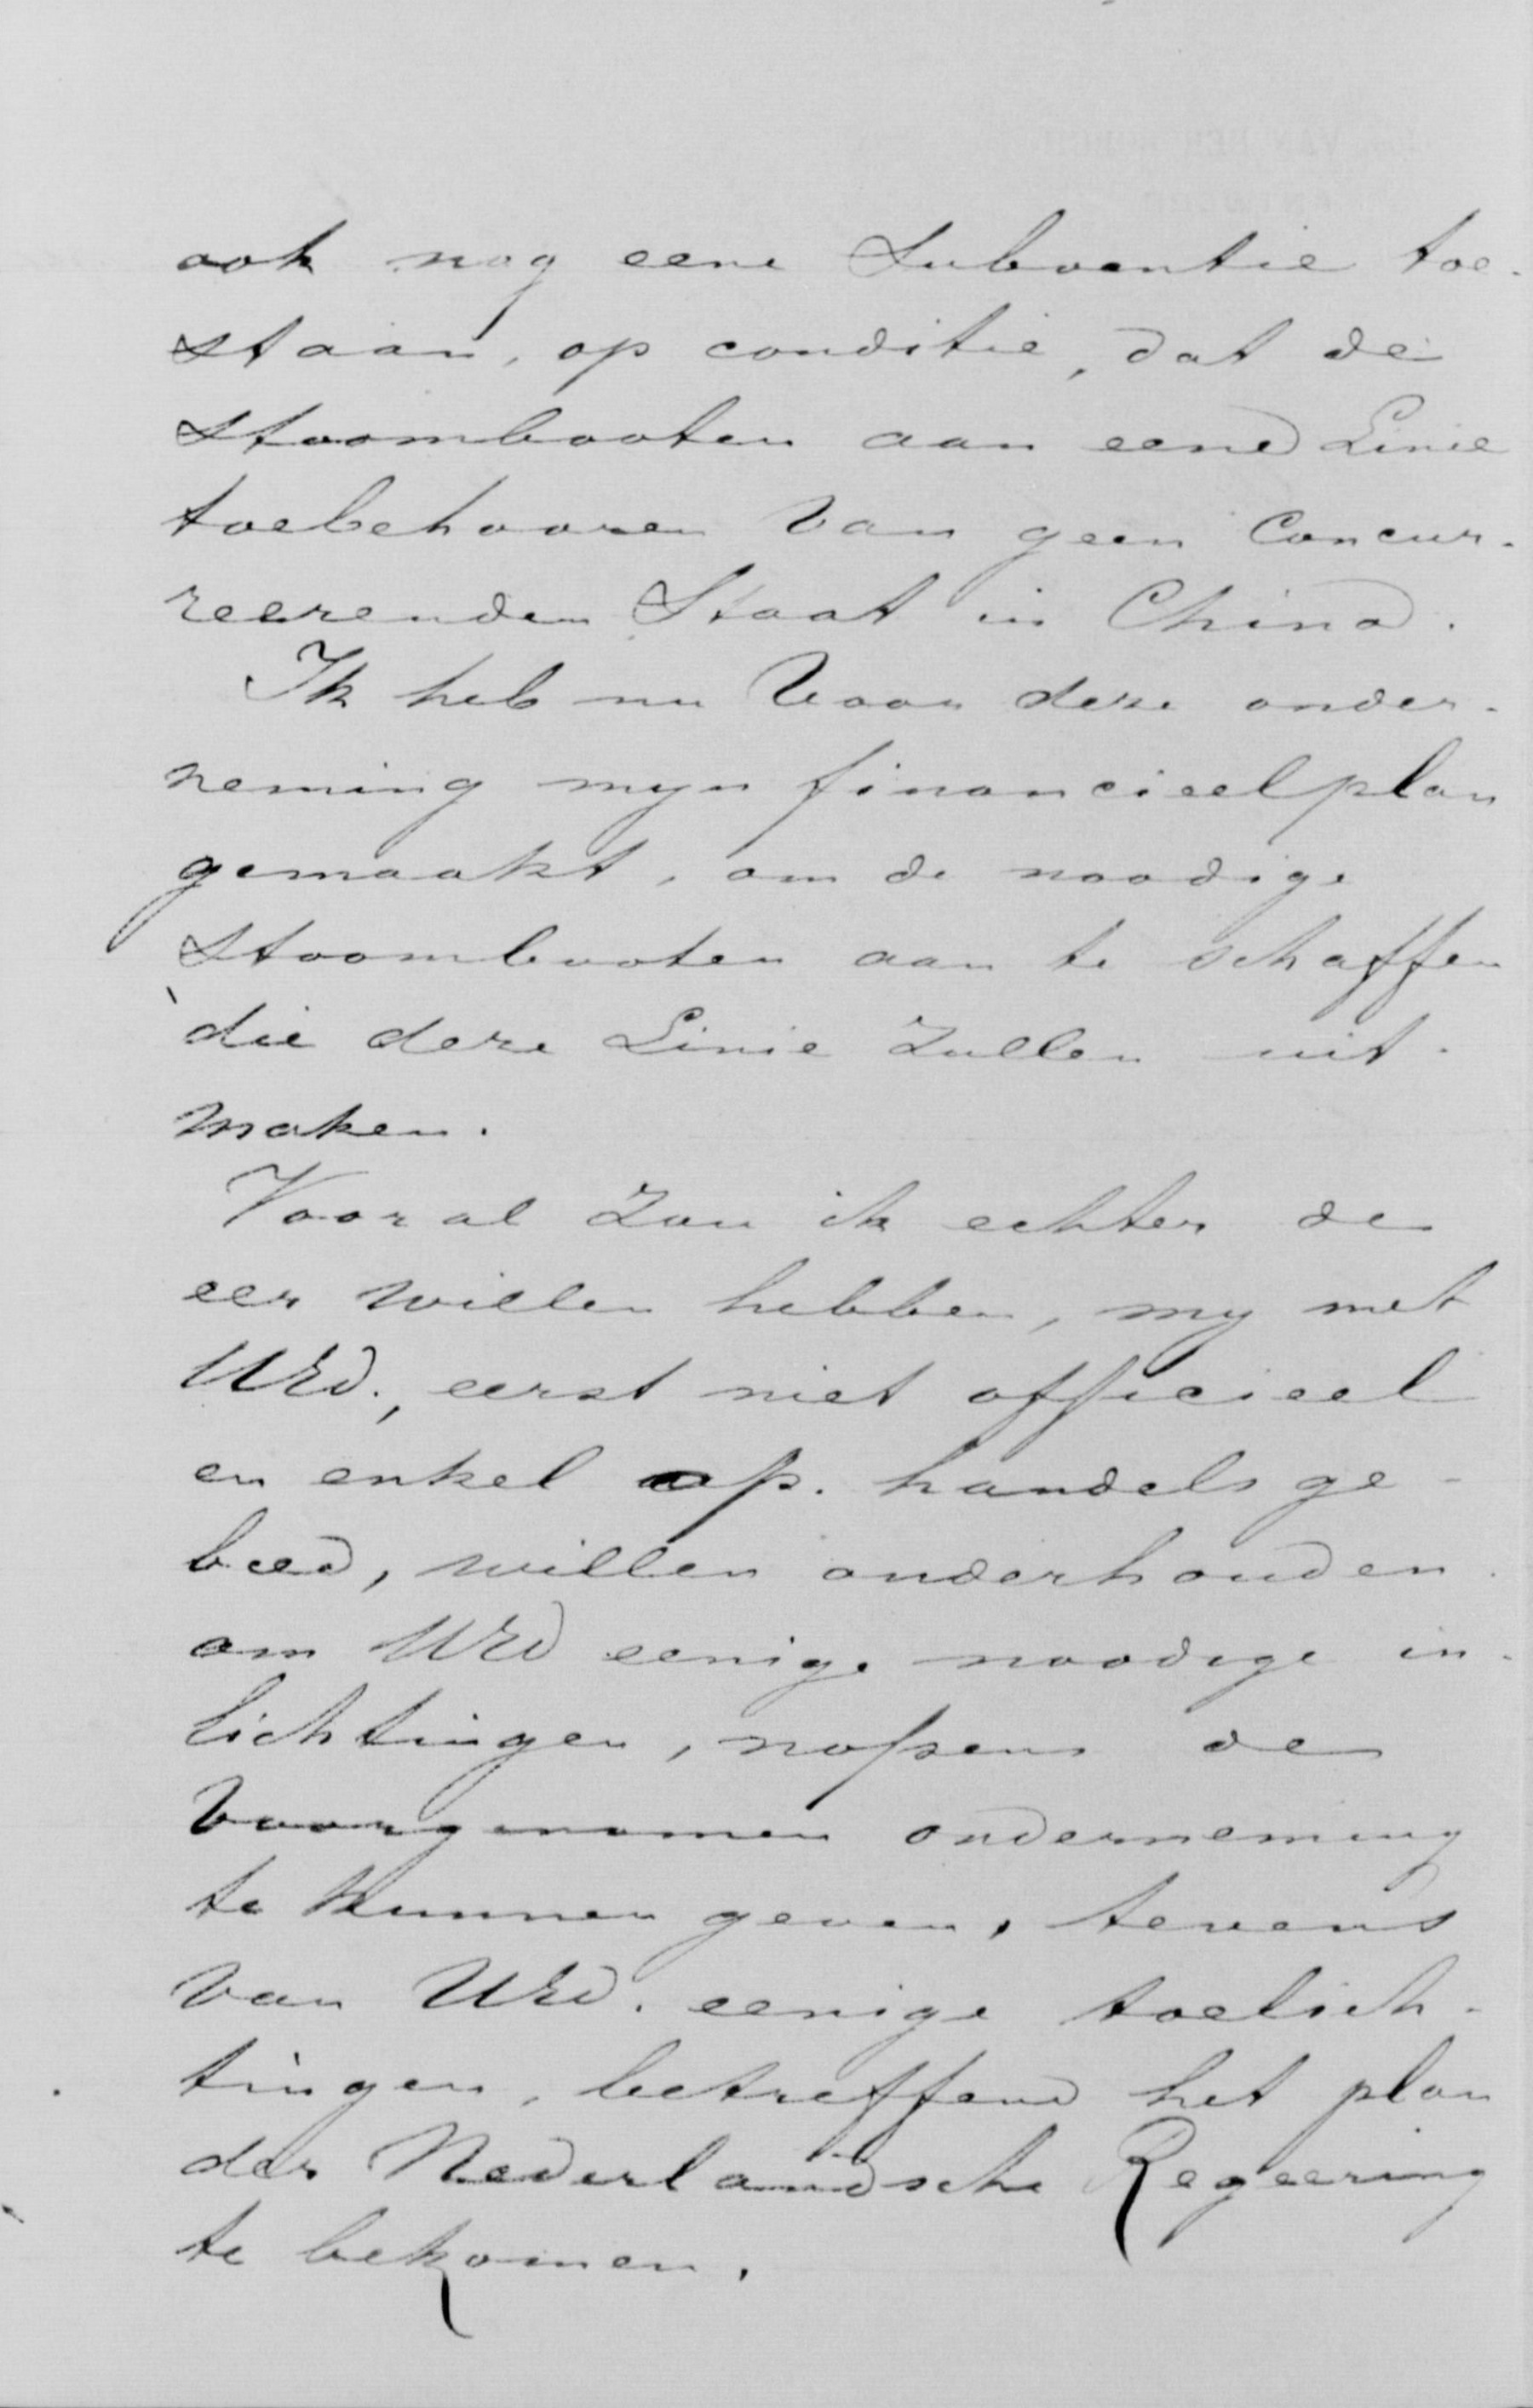 ook nog eene Subventie toe-
staan, op conditie, dat de
Stoombooten aan eene Linie
toebehooren van geen Concur-
reerenden Staat in China.
Ik heb nu voor deze onder-
neming myn financieelplan
gemaakt, om de noodige
Stoombooten aan te schaffen
die deze Linie Zullen uit-
maken.
Vooral Zou ik echter de
eer willen hebben, my met
UEd., eerst niet officieel
en enkel op handelsge-
bied, willen onderhouden
om UEd eenige noodige in-
lichtingen, nopens de
voorgenomen onderneming
te kunnen geven, tevens
van UEd. eenige toelich-
tingen, betreffend het plan
der Nederlandsche Regeering
te bekomen.